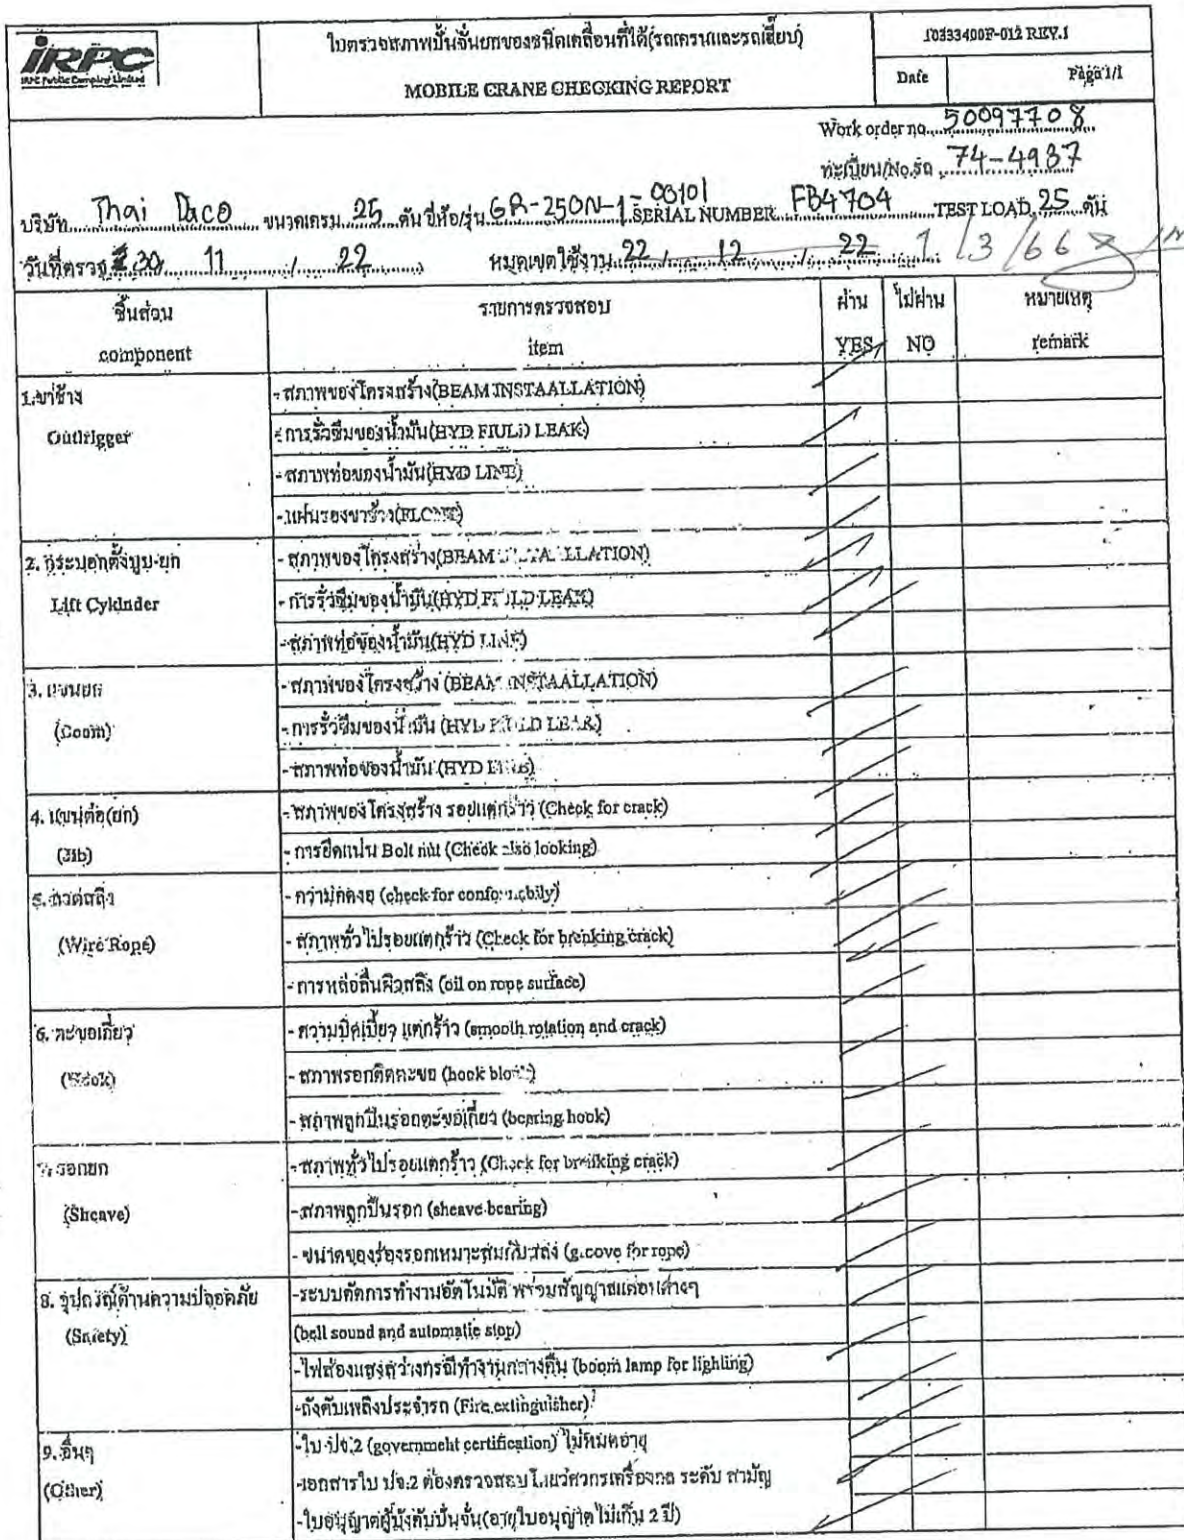 IRPC
IRPC Public Company Limited
ใบตรวจสภาพปั้นจั่นยกของชนิดเคลื่อนที่ได้(รถเครนและรถเฮี๊ยบ)
MOBILE CRANE CHECKING REPORT
10333400F-012 REV.1
Date
Page 1/1
Work order no. 50097708
ทะเบียน/No.รถ 74-4937
บริษัท Thai Daco ขนาดเครน 25 ตัน ยี่ห้อ/รุ่น GR-250N-1-00101 SERIAL NUMBER FB4704 TEST LOAD 25 ตัน
วันที่ตรวจ 30 11 / 22 หมดเขตใช้งาน 22 / 12 / 22 1/3/66
ชิ้นส่วน
component
รายการตรวจสอบ
item
ผ่าน
YES
ไม่ผ่าน
NO
หมายเหตุ
remark
1.ขาช้าง
Outlrigger
-สภาพของโครงสร้าง(BEAM INSTAALLATION)
-การรั่วซึมของน้ำมัน(HYD FIULD LEAK)
-สภาพท่อของน้ำมัน(HYD LINE)
-แผ่นรองขาช้าง
2. กระบอกตั้งบูม-ยก
Lift Cykinder
- สภาพของโครงสร้าง(BEAM LLATION)
- การรั่วซึมของน้ำมัน(HYD FIULD LEAK)
-สภาพท่อของน้ำมัน(HYD LINE)
3. แขนยก
(Boom)
-สภาพของโครงสร้าง (BEAM INSTAALLATION)
-การรั่วซึมของน้ำมัน (HYD FIULD LEAK)
-สภาพท่อของน้ำมัน (HYD LINE)
4. แขนต่อ(ยก)
(Jib)
-สภาพของโครงสร้าง รอยแตกร้าว (Check for crack)
- การยึดแน่น Bolt nut (Check also looking)
5. ลวดสลิง
(Wire Rope)
- ความคดงอ (check for
- สภาพทั่วไปรอยแตกร้าว (Check for breaking crack)
-การหล่อลื่นผิวสลิง (oil on rope surface)
6. ตะขอเกี่ยว
(Hook)
- ความบิดเบี้ยว แตกร้าว (smooth rotation and crack)
- สภาพรอกติดตะขอ (hook block)
-สภาพลูกปืนรอกตะขอเกี่ยว (bearing hook)
7. รอกยก
(Sheave)
-สภาพทั่วไปรอยแตกร้าว (Check for breaking crack)
-สภาพลูกปืนรอก (sheave bearing)
-ขนาดของร่องรอกเหมาะสมกับสลิง (groove for rope)
8. อุปกรณ์ด้านความปลอดภัย
(Safety)
-ระบบตัดการทำงานอัตโนมัติ พร้อมสัญญาณเตือนต่างๆ
(bell sound and automatic stop)
-ไฟส่องแสงสว่างกรณีทำงานกลางคืน (boom lamp for lighting)
-ถังดับเพลิงประจำรถ (Fire extinguisher)
9. อื่นๆ
(Other)
-ใบ ปจ.2 (government certification) ไม่หมดอายุ
-เอกสารใบ ปจ.2 ต้องตรวจสอบโดยวิศวกรเครื่องกล ระดับ สามัญ
-ใบอนุญาตผู้บังคับปั้นจั่น(อายุใบอนุญาตไม่เกิน 2 ปี)